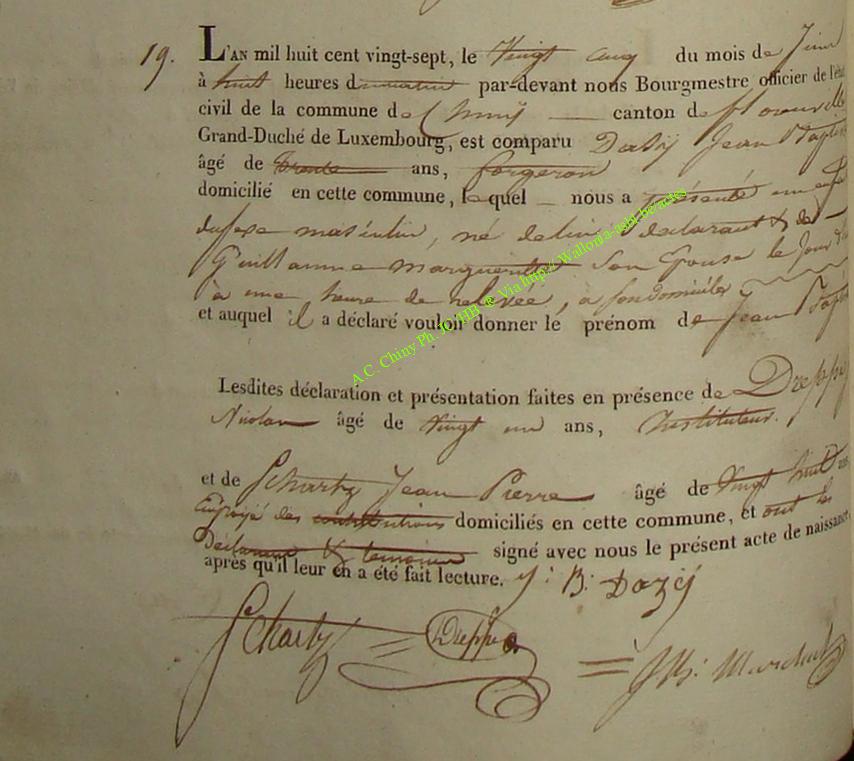 19. L'AN mil huit cent vingt-sept, le Vingt cinq du mois de Juin
à huit heures du matin par-devant nous Bourgmestre officier de l'état
civil de la commune de Chiny — canton de florenville
Grand-Duché de Luxembourg, est comparu Dazÿ Jean Baptiste
âgé de trente ans, forgeron
domicilié en cette commune, lequel — nous a présenté un enfant
du sexe masculin, né de lui déclarant & de
Guillaume Marguerite Son Epouse le jour d'hier
à une heure de relevée, à son domicile
et auquel il a déclaré vouloir donner le prénom de Jean Baptiste
Lesdites déclaration et présentation faites en présence de Dreppe
Nicolas âgé de vingt un ans, Instituteur.
et de Schartz Jean Pierre âgé de Vingt huit ans
Employé des contributions domiciliés en cette commune, et ont les
Déclarant & temoins signé avec nous le présent acte de naissance,
après qu'il leur en a été fait lecture. J: B: Dozÿ
Schartz = Dreppe = Marchal
A.C. Chiny Ph. JO/HB Via http:// Wallonia-asbl.be/actes